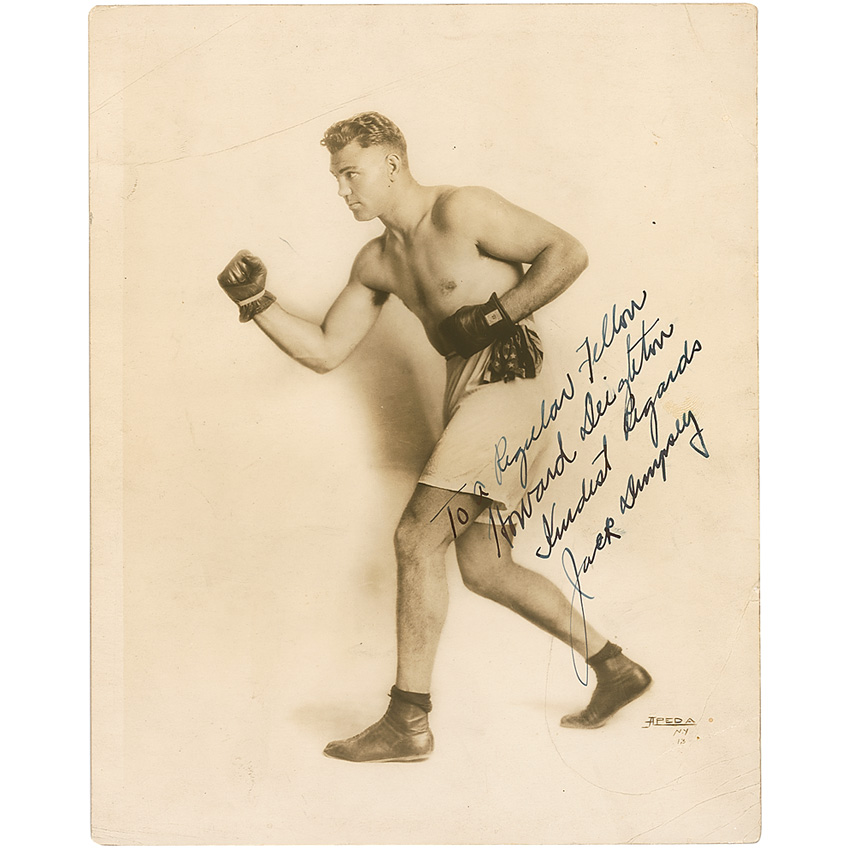 To a Regular Fellow
Howard Deighton
Kindest Regards
Jack Dempsey
APEDA
NY
13